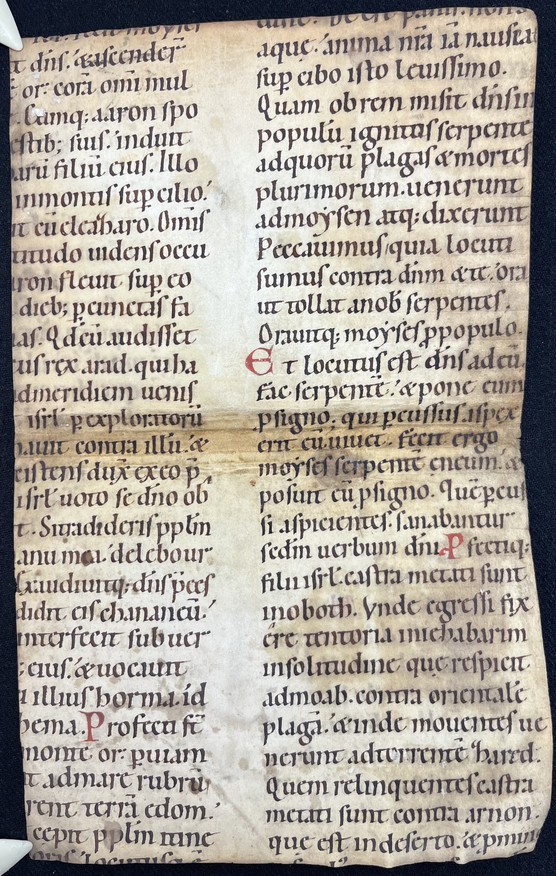 t dn̄s. & ascender̄
or. corā om̄i mul
Cumq; aaron spo
stib; suis. induit
arū filiū eius. Illo
in montis sup cilio.
t cū eleazaro. Om̄is
titudo uidens occu
ron fleuit sup eo
dieb; p cunctas fa
as. Qd cū audisset
eus rex arad. qui ha
ad meridiem uenis
isrł p exploratorū
nauit contra illū. &
sistens dux ex eo p̄
isrł uoto se dn̄o ob
t. Si tradideris ppłm
anu mea. delebo ur
Exaudiuitq; dn̄s p̄ces
didit eis chananeū.
interfecit sub uer
eius. & uocauit
illius horma. id
hema. Profecti st̄
monte or. p uiam
t ad mare rubrū
rent terrā edom.
cepit ppłm itine
aque. anima nr̄a iā nausia
sup cibo isto leuissimo.
Quam obrem misit dn̄s in
populū ignitos serpente
ad quorū plagas & mortes
plurimorum. uenerunt
ad moysen atq; dixerunt
Peccauimus quia locuti
sumus contra dn̄m & te. ora
ut tollat a nob serpentes.
Orauitq; moyses p populo.
Et locutus est dn̄s ad eū
Fac serpentē. & pone eum
p signo. qui pcussus aspex
erit eū uiuet. Fecit ergo
moyses serpentē eneum. &
posuit eū p signo. Quē pcus
si aspicientes. sanabantur
scdm uerbum dn̄i. Pfectiq;
filii isrł. castra metati sunt
in oboth. Vnde egressi fix
ere tentoria in ieabarim
in solitudine que respicit
ad moab. contra orientalē
plagā. & inde mouentes ue
nerunt ad torrentē zared.
Quem relinquentes castra
metati sunt contra arnon.
que est in deserto. & pmin